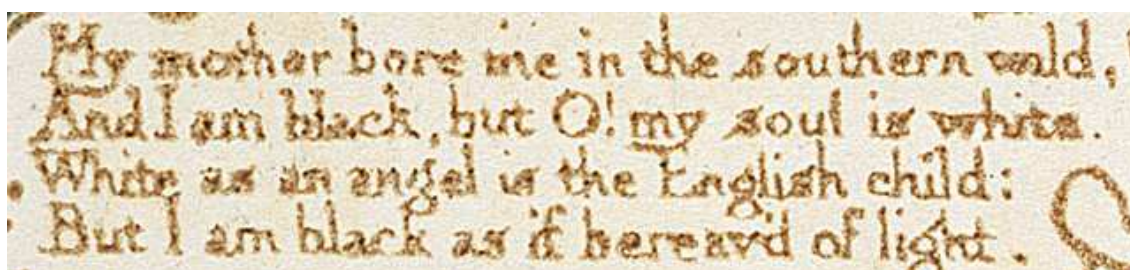 My mother bore me in the southern wild,
And I am black, but O! my soul is white.
White as an angel is the English child:
But I am black as if bereav'd of light.